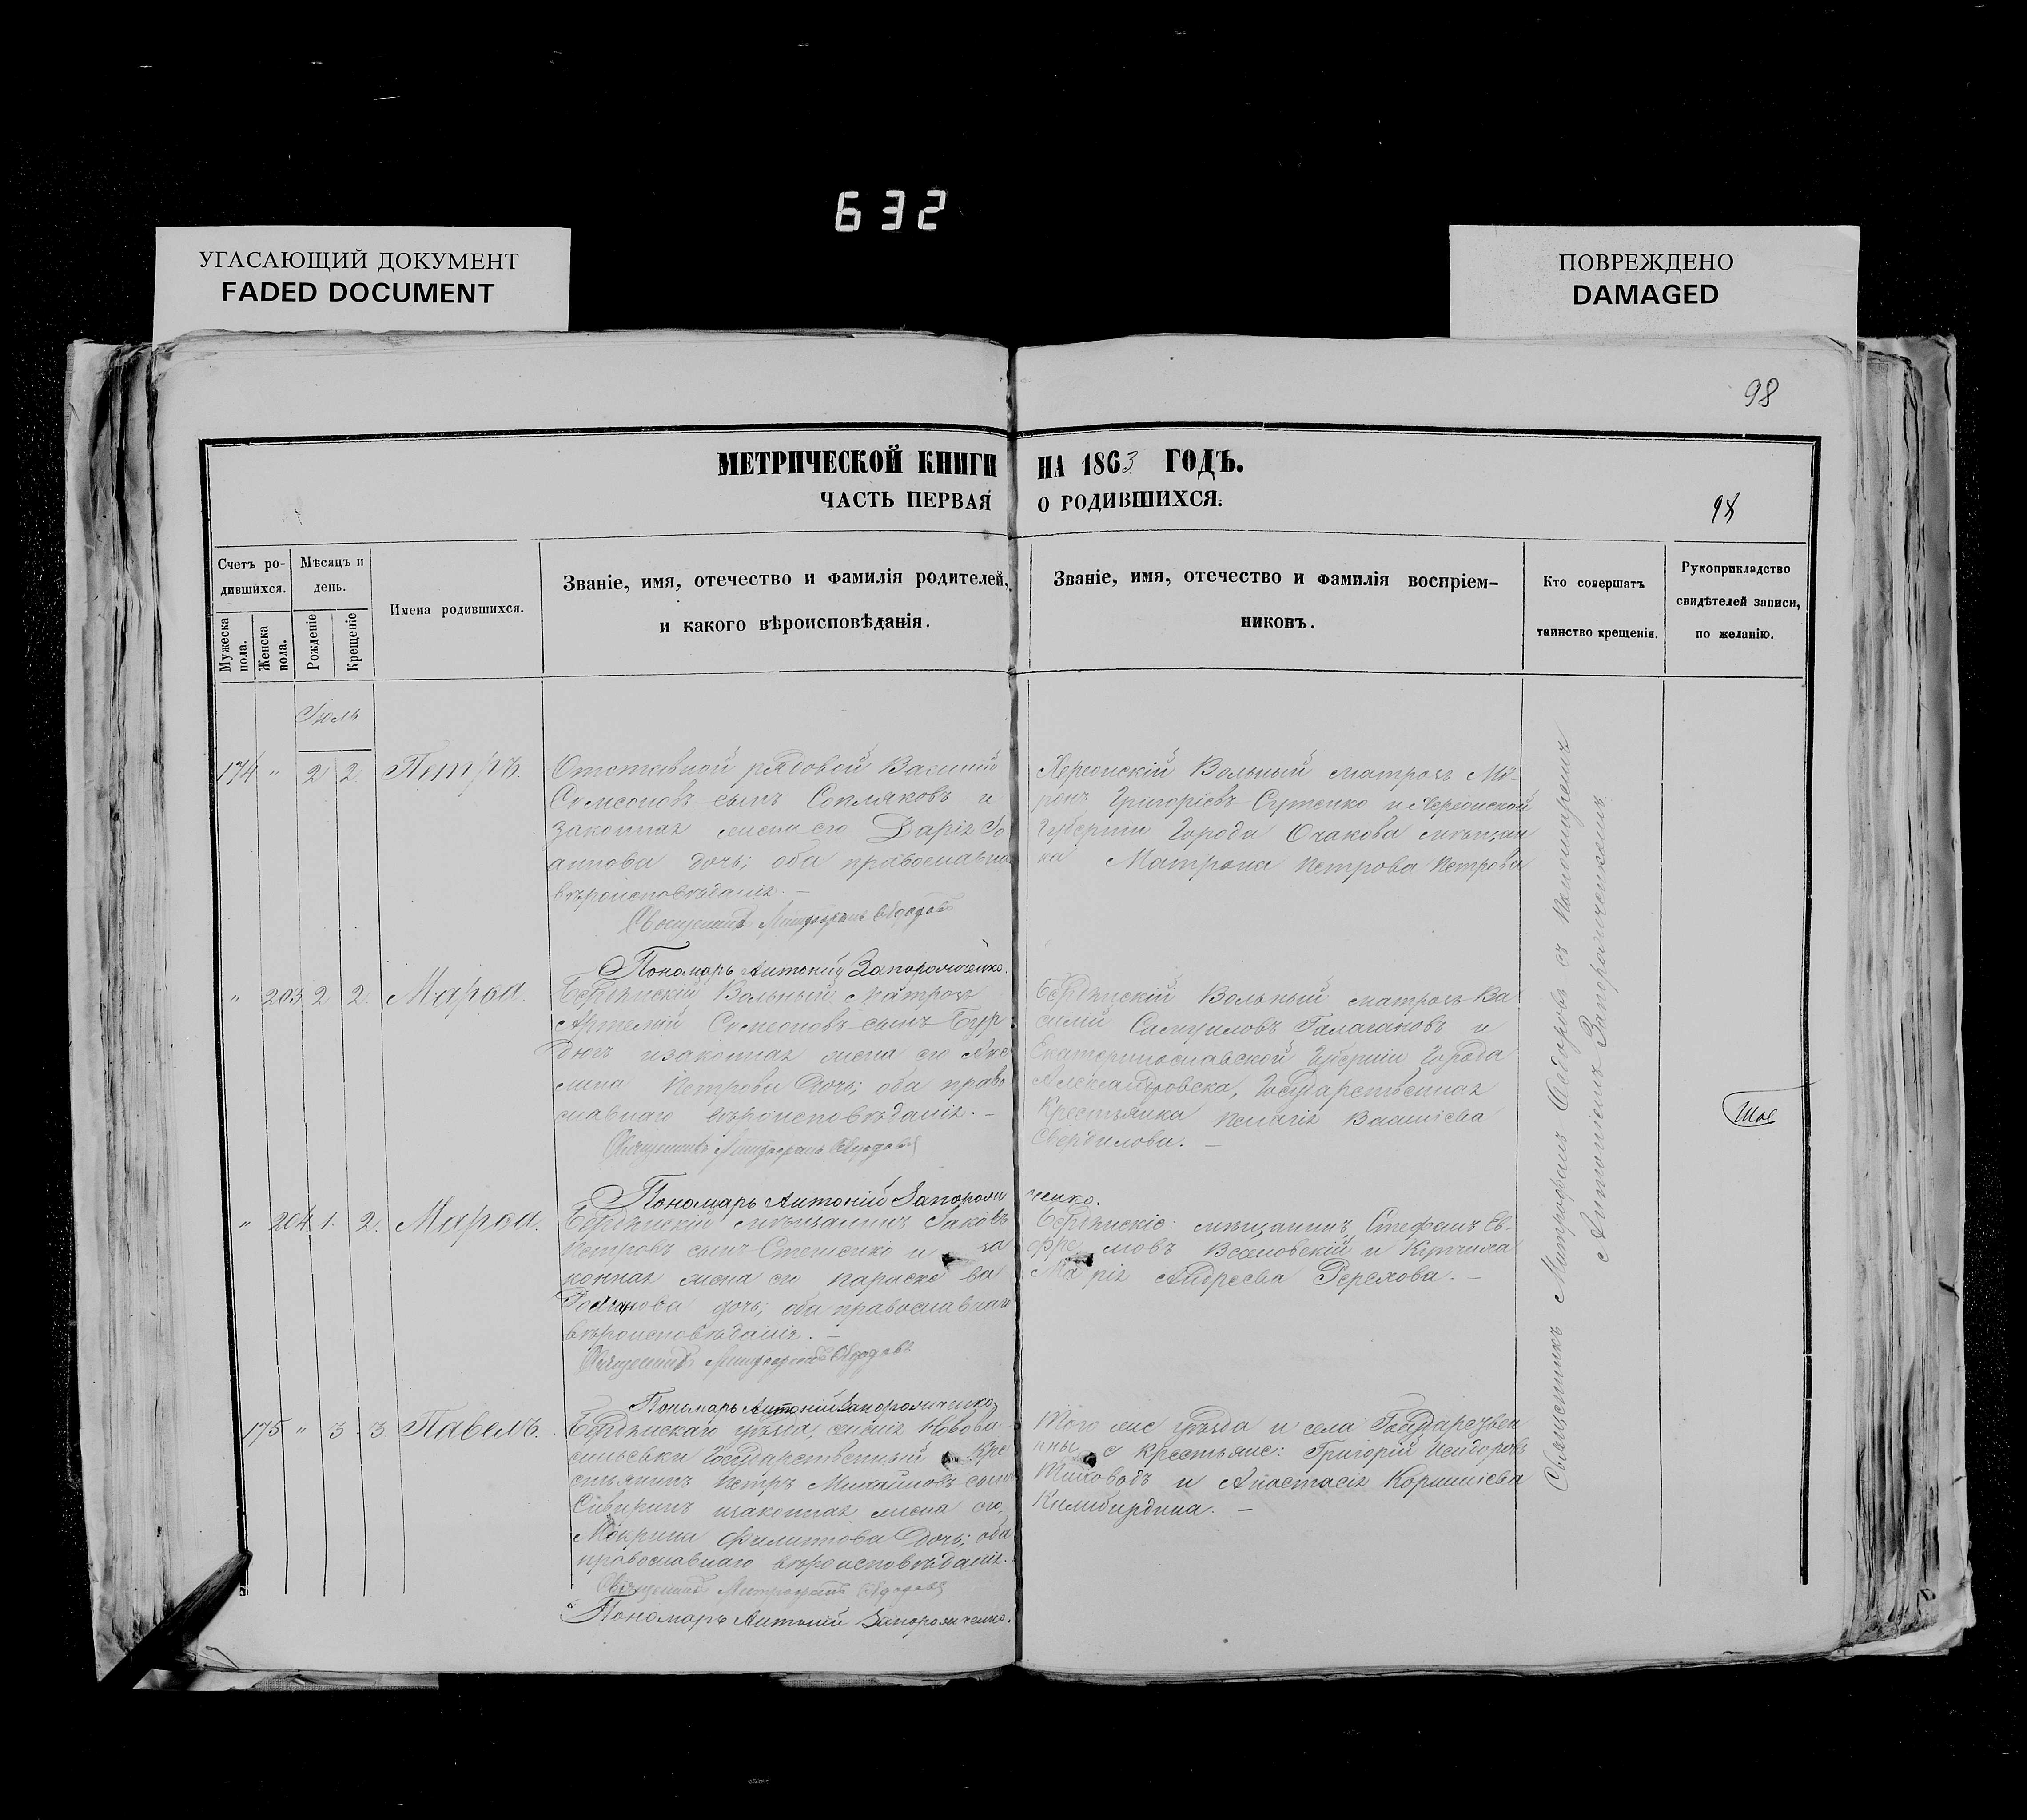 632
УГАСАЮЩИЙ ДОКУМЕНТ
FADED DOCUMENT
ПОВРЕЖДЕНО
DAMAGED
98
МЕТРИЧЕСКОЙ КНИГИ НА 1863 ГОДЪ.
ЧАСТЬ ПЕРВАЯ О РОДИВШИХСЯ.
98
Счетъ ро-
дившихся.
Мужеска пола.
Женска пола.
Мѣсяцъ и
день.
Рожденіе
Крещеніе
Имена родившихся.
Званіе, имя, отечество и фамилія родителей,
и какого вѣроисповѣданія.
Званіе, имя, отечество и фамилія воспріем-
никовъ.
Кто совершатъ
таинство крещенія.
Рукоприкладство
свидѣтелей записи,
по желанію.
Іюль
174 " 2 2 Петръ.
Отставной рядовой Василій
Симеоновъ сынъ Сопляковъ и
законная жена его Дарія Іо
аннова дочь; оба православна
вѣроисповѣданія. —
Священникъ Митрофанъ
Пономарь Антоній Запорожченко.
Херсонскій Вольный матросъ Ми-
ронъ Григоріевъ Сутенко и Херсонской
Губерніи Города Очакова мѣщан
ка Матрона Петрова Петрова
" 203 2 2. Марѳа.
Бердянскій Вольный матросъ
Артемій Симеоновъ сынъ Бур
дюгъ и законная жена его Аки
лина Петрова дочь; оба право
славнаго вѣроисповѣданія. —
Священникъ Митрофанъ
Пономарь Антоній Запорожченко.
Бердянскій Вольный матросъ Ва
силій Самуиловъ Галагановъ и
Екатеринославской Губерніи Города
Александровска, Государственная
Крестьянка Пелагія Васильева
Свердилова. —
" 204 1. 2. Марѳа.
Бердянскій мѣщанинъ Іаковъ
Петровъ сынъ Степенко и за
конная жена его Параске ва
дочь; оба православнаго
вѣроисповѣданія. —
Священникъ Митрофанъ
Пономарь Антоній Запорожченко
Бердянскіе: мѣщанинъ Стефанъ Еѳ-
фре мовъ и Купчиха
Ма рія Андреева Терехова. —
175 " 3 3. Павелъ.
Бердянскаго уѣзда, селенія Новова
сильевки Государственный Кре
стьянинъ Петръ Михайловъ сынъ
Сивиринъ и законная жена его,
Мокрина Филиппова дочь; оба
православнаго вѣроисповѣданія.
Священникъ Митрофанъ
Пономарь Антоній Запорожченко.
Того же уѣзда и села Государствен
ны е Крестьяне: Григорій Исидоровъ
и Анастасія Корниліева
—
Священникъ Митрофанъ Ѳедоровъ съ Пономаремъ
Антоніемъ Запорожченкомъ.